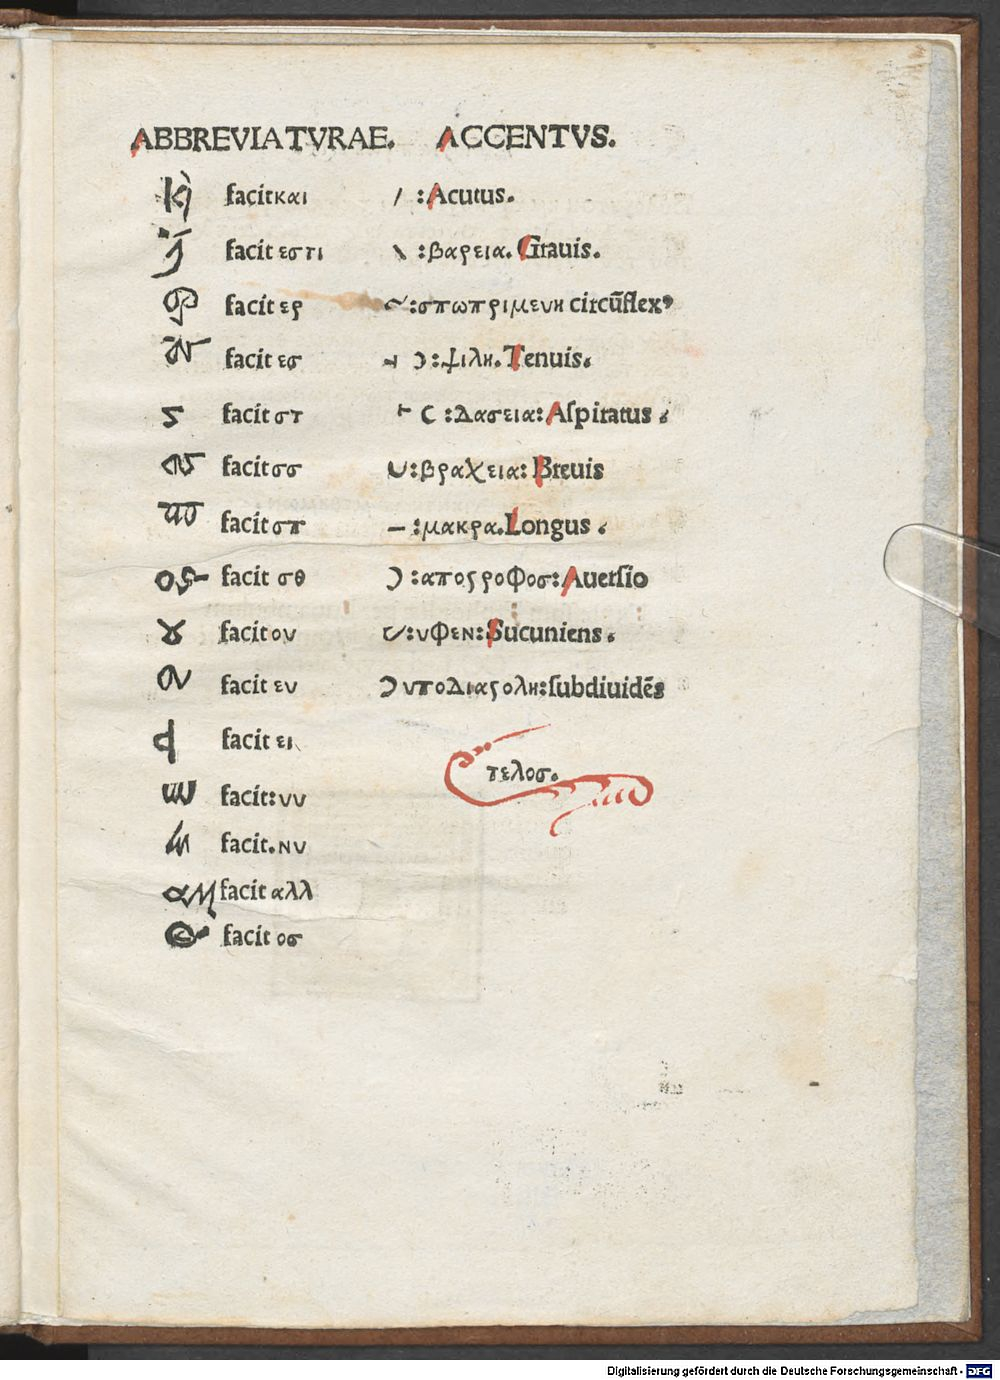 ABBREVIATVRAE. ACCENTVS.
facit και / : Acutus.
facit εστι \ : βαρεια. Grauis.
facit ερ ~ : σπωπριμενη circūflexꝰ
facit εσ ⊣ Ɔ : ψιλη. Tenuis.
ϛ facit στ ⊢ C : Δασεια: Aſpiratus.
facit σσ ∪ : βραχεια: Breuis
facit σπ – : μακρα. Longus.
facit σθ Ɔ : αποϛροφοσ: Auerſio
ȣ facit ου ‿ : υφεν: Sucuniens.
facit ευ Ɔ υποΔιαϛολη: ſubdiuidēs
facit ει
τελοσ.
facit: υυ
facit. νυ
facit αλλ
facit οσ
Digitalisierung gefördert durch die Deutsche Forschungsgemeinschaft - DFG